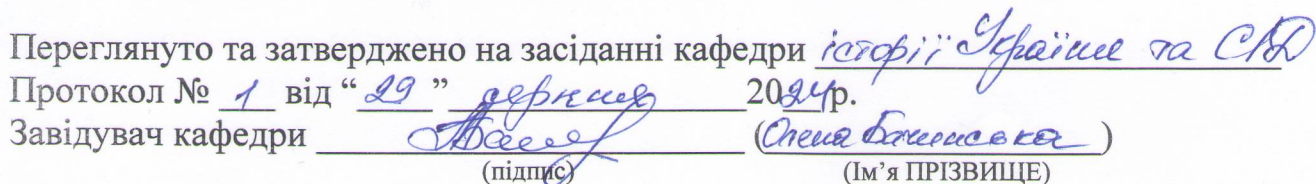 Переглянуто та затверджено на засіданні кафедри історії України та СІД
Протокол № 1 від “29” серпня 2024р.
Завідувач кафедри (Олена Бачинська)
(підпис) (Ім’я ПРІЗВИЩЕ)